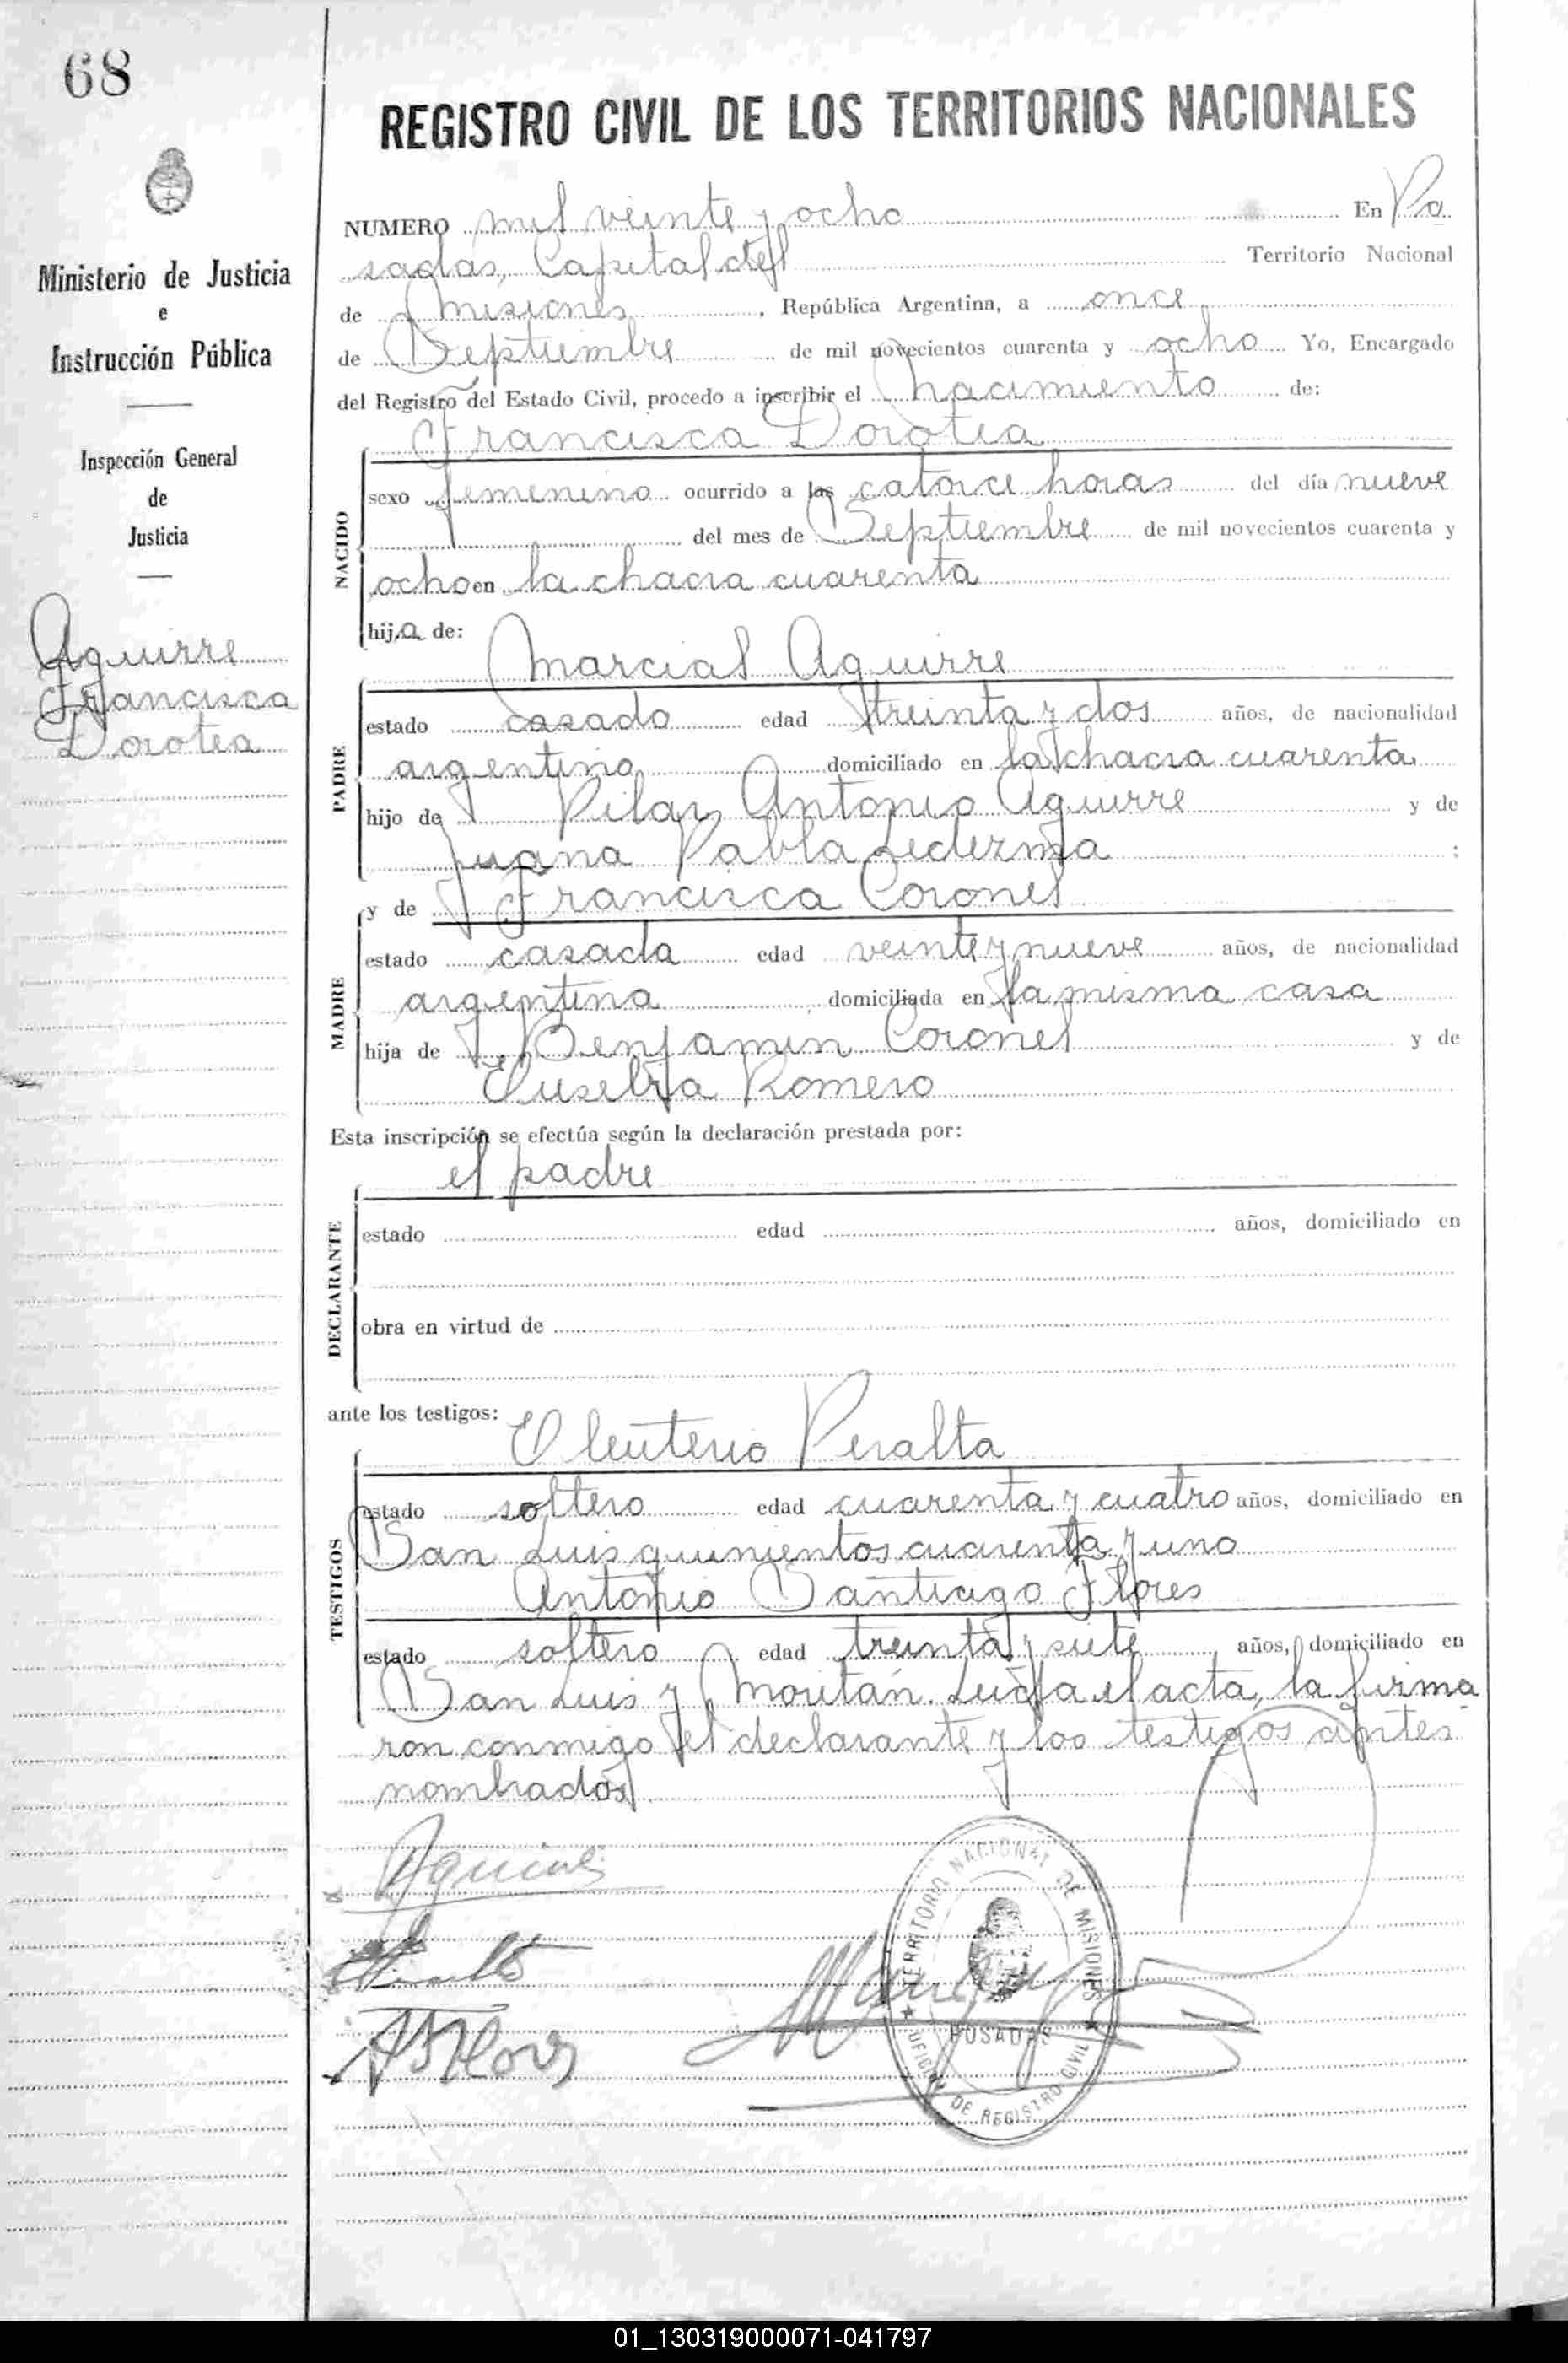 68
REGISTRO CIVIL DE LOS TERRITORIOS NACIONALES
Ministerio de Justicia
e
Instrucción Pública
Inspección General
de
Justicia
Aguirre
Francisca
Dorotea
NUMERO mil veinte y ocho En Po
sadas, Capital del Territorio Nacional
de Misiones, República Argentina, a once
de Septiembre de mil novecientos cuarenta y ocho Yo, Encargado
del Registro del Estado Civil, procedo a inscribir el Nacimiento de:
Francisca Dorotea
NACIDO
sexo femenino ocurrido a las catorce horas del día nueve
del mes de Septiembre de mil novecientos cuarenta y
ocho en la chacra cuarenta
hija de:
Marcial Aguirre
PADRE
estado casado edad treinta y dos años, de nacionalidad
argentino domiciliado en la chacra cuarenta
hijo de Pilar Antonio Aguirre y de
Juana Pabla Ledezma ;
y de Francisca Coronel
MADRE
estado casada edad veinte y nueve años, de nacionalidad
argentina domiciliada en la misma casa
hija de Benjamin Coronel y de
Eusebia Romero
Esta inscripción se efectúa según la declaración prestada por:
el padre
DECLARANTE
estado edad años, domiciliado en
obra en virtud de
ante los testigos:
Eleuterio Peralta
TESTIGOS
estado soltero edad cuarenta y cuatro años, domiciliado en
San Luis quinientos cuarenta y uno
Antonio Santiago Flores
estado soltero edad treinta y siete años, domiciliado en
San Luis y Moritán. Leida el acta, la firma
ron conmigo el declarante y los testigos antes
nombrados
Aguirre
ASFlores
TERRITORIO NACIONAL DE MISIONES
POSADAS
OFICINA DE REGISTRO CIVIL
01_130319000071-041797